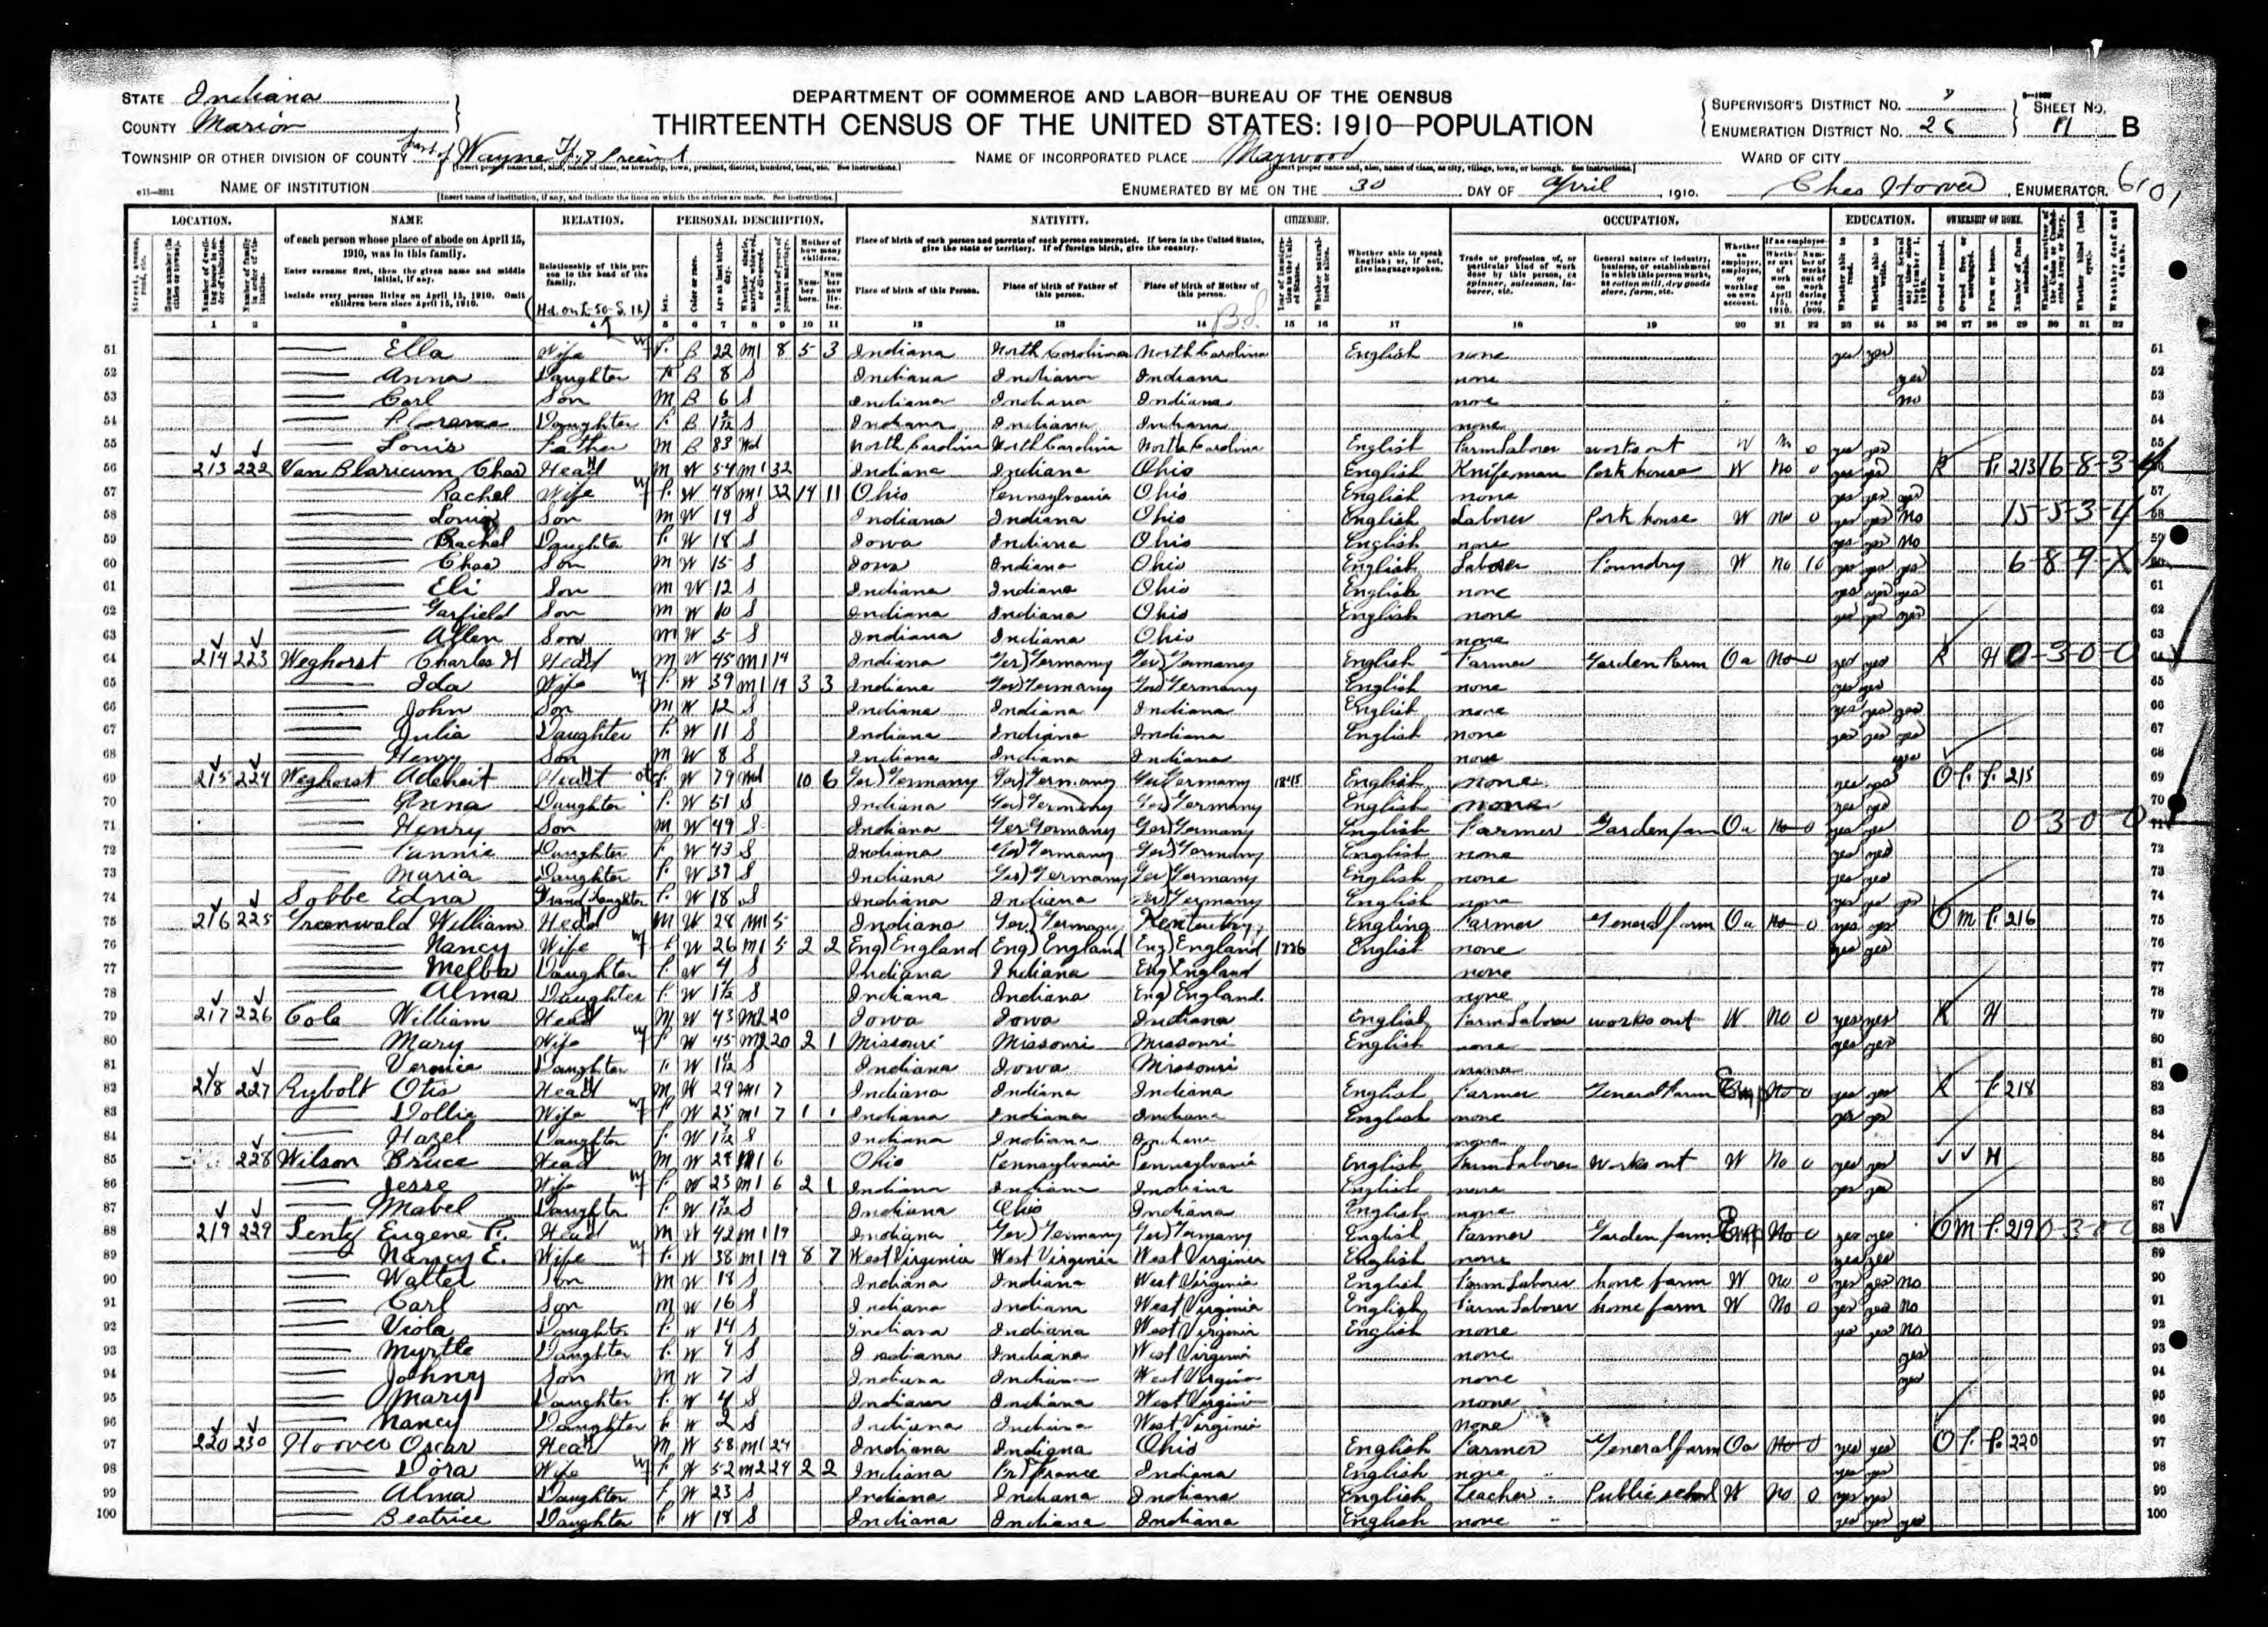 STATE Indiana
COUNTY Marion
DEPARTMENT OF COMMERCE AND LABOR—BUREAU OF THE CENSUS
THIRTEENTH CENSUS OF THE UNITED STATES: 1910—POPULATION
SUPERVISOR'S DISTRICT No.
ENUMERATION DISTRICT No.
SHEET No. 11 B
TOWNSHIP OR OTHER DIVISION OF COUNTY part of Wayne Tp
NAME OF INCORPORATED PLACE Maywood
WARD OF CITY
NAME OF INSTITUTION
ENUMERATED BY ME ON THE 30 DAY OF April, 1910. Chas Hoover, ENUMERATOR.
LOCATION. NAME RELATION. PERSONAL DESCRIPTION. NATIVITY. CITIZENSHIP. OCCUPATION. EDUCATION. OWNERSHIP OF HOME.
of each person whose place of abode on April 15, 1910, was in this family.
Enter surname first, then the given name and middle initial, if any.
Include every person living on April 15, 1910. Omit children born since April 15, 1910.
Relationship of this person to the head of the family.
Place of birth of each person and parents of each person enumerated. If born in the United States, give the state or territory. If of foreign birth, give the country.
Place of birth of this Person. Place of birth of Father of this person. Place of birth of Mother of this person.
Whether able to speak English; or, if not, give language spoken.
1 2 3 4 5 6 7 8 9 10 11 12 13 14 15 16 17 18 19 20 21 22 23 24 25 26 27 28 29 30 31 32
51 Ella Wife F B 22 M1 8 5 3 Indiana North Carolina North Carolina English none yes yes
52 Anna Daughter F B 8 S Indiana Indiana Indiana none yes
53 Carl Son M B 6 S Indiana Indiana Indiana none no
54 Florence Daughter F B S Indiana Indiana Indiana none
55 Louis Father M B 83 Wd North Carolina North Carolina North Carolina English Farm Laborer works out W 0 yes yes
56 213 222 Van Blaricum Chas Head M W 54 M1 32 Indiana Indiana Ohio English Knifeman Pork house W No 0 yes yes R F 213 16-8-3-4
57 Rachel Wife F W 48 M1 32 14 11 Ohio Pennsylvania Ohio English none yes yes
58 Louis Son M W 19 S Indiana Indiana Ohio English Laborer Pork house W no 0 yes yes no 15-5-3-4
59 Rachel Daughter F W 18 S Iowa Indiana Ohio English none yes yes No
60 Chas Son M W 15 S Iowa Indiana Ohio English Laborer Foundry W no 10 yes yes yes 6-8-9-X
61 Eli Son M W 12 S Indiana Indiana Ohio English none yes yes yes
62 Garfield Son M W 10 S Indiana Indiana Ohio English none yes yes yes
63 Allen Son M W 5 S Indiana Indiana Ohio none
64 214 223 Weghorst Charles H Head M W 45 M1 14 Indiana Ger) Germany Ger) Germany English Farmer Garden Farm Oa No 0 yes yes R H 0-3-0-0
65 Ida Wife F W 39 M1 14 3 3 Indiana Ger) Germany Ger) Germany English none yes yes
66 John Son M W 12 S Indiana Indiana Indiana English none yes yes yes
67 Julia Daughter F W 11 S Indiana Indiana Indiana English none yes yes yes
68 Henry Son M W 8 S Indiana Indiana Indiana none yes
69 215 224 Weghorst Adeheit Head F W 79 Wd 10 6 Ger) Germany Ger) Germany Ger Germany 1845 English none yes yes O F F 215
70 Anna Daughter F W 51 S Indiana Ger) Germany Ger) Germany English none yes yes
71 Henry Son M W 49 S Indiana Ger Germany Ger) Germany English Farmer Garden farm Oa no 0 yes yes 0-3-0-0
72 Fannie Daughter F W 43 S Indiana Ger) Germany Ger) Germany English none yes yes
73 Maria Daughter F W 37 S Indiana Ger) Germany Ger) Germany English none yes yes
74 Sobbe Edna Grand daughter F W 18 S Indiana Indiana Ger) Germany English none yes yes yes
75 216 225 Greenwald William Head M W 28 M1 5 Indiana Ger) Germany Kentucky Engling Farmer General farm Oa no 0 yes yes O M F 216
76 Nancy Wife F W 26 M1 5 2 2 Eng) England Eng) England Eng) England 1886 English none yes yes
77 Melba Daughter F W 4 S Indiana Indiana Eng England none
78 Alma Daughter F W S Indiana Indiana Eng) England none
79 217 226 Cole William Head M W 43 M2 20 Iowa Iowa Indiana English Farm Laborer works out W No 0 yes yes R H
80 Mary Wife F W 45 M2 20 2 1 Missouri Missouri Missouri English none yes yes
81 Vernice Daughter F W S Indiana Iowa Missouri none
82 218 227 Rybolt Otis Head M W 29 M1 7 Indiana Indiana Indiana English Farmer General Farm Emp No 0 yes yes R F 218
83 Dollie Wife F W 25 M1 7 1 1 Indiana Indiana Indiana English none yes yes
84 Hazel Daughter F W S Indiana Indiana Indiana none
85 228 Wilson Bruce Head M W 24 M1 6 Ohio Pennsylvania Pennsylvania English Farm Laborer works out W No 0 yes yes H
86 Jesse Wife F W 23 M1 6 2 1 Indiana Indiana Indiana English none yes yes
87 Mabel Daughter F W S Indiana Ohio Indiana English none
88 219 229 Lentz Eugene F. Head M W 42 M1 19 Indiana Ger) Germany Ger) Germany English Farmer Garden farm Emp No 0 yes yes O M F 219 0-3-0-0
89 Nancy E. Wife F W 38 M1 19 8 7 West Virginia West Virginia West Virginia English none yes yes
90 Walter Son M W 18 S Indiana Indiana West Virginia English Farm Laborer home farm W No 0 yes yes no
91 Carl Son M W 16 S Indiana Indiana West Virginia English Farm Laborer home farm W No 0 yes yes no
92 Viola Daughter F W 14 S Indiana Indiana West Virginia English none yes yes no
93 Myrtle Daughter F W 9 S Indiana Indiana West Virginia none yes
94 Johny Son M W 7 S Indiana Indiana West Virginia none yes
95 Mary Daughter F W 4 S Indiana Indiana West Virginia none
96 Nancy Daughter F W 2 S Indiana Indiana West Virginia none
97 220 230 Hoover Oscar Head M W 58 M1 24 Indiana Indiana Ohio English Farmer General farm Oa No 0 yes yes O F F 220
98 Dora Wife F W 52 M2 24 2 2 Indiana Fr) France Indiana English none yes yes
99 Alma Daughter F W 23 S Indiana Indiana Indiana English Teacher Public school W No 0 yes yes
100 Beatrice Daughter F W 18 S Indiana Indiana Indiana English none yes yes yes